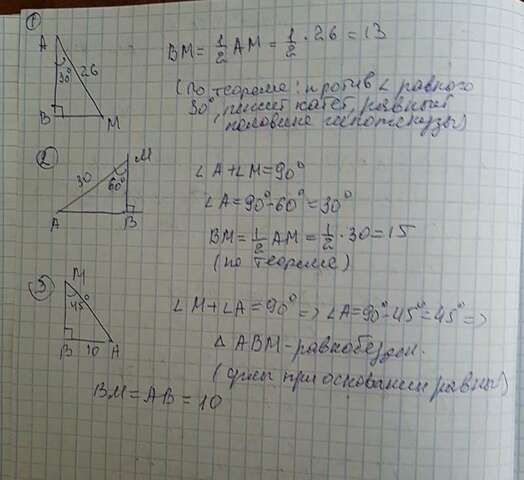 1
A
30° 26
B M
BM = 1/2 AM = 1/2 · 26 = 13
(по теореме: против ∠ равного
30°, лежит катет, равный
половине гипотенузы)
2
M
30 60°
A B
∠A + ∠M = 90°
∠A = 90° - 60° = 30°
BM = 1/2 AM = 1/2 · 30 = 15
(по теореме)
3
M
45°
B 10 A
∠M + ∠A = 90° => ∠A = 90° - 45° = 45° =>
Δ ABM - равнобедрен.
(углы при основании равны)
BM = AB = 10